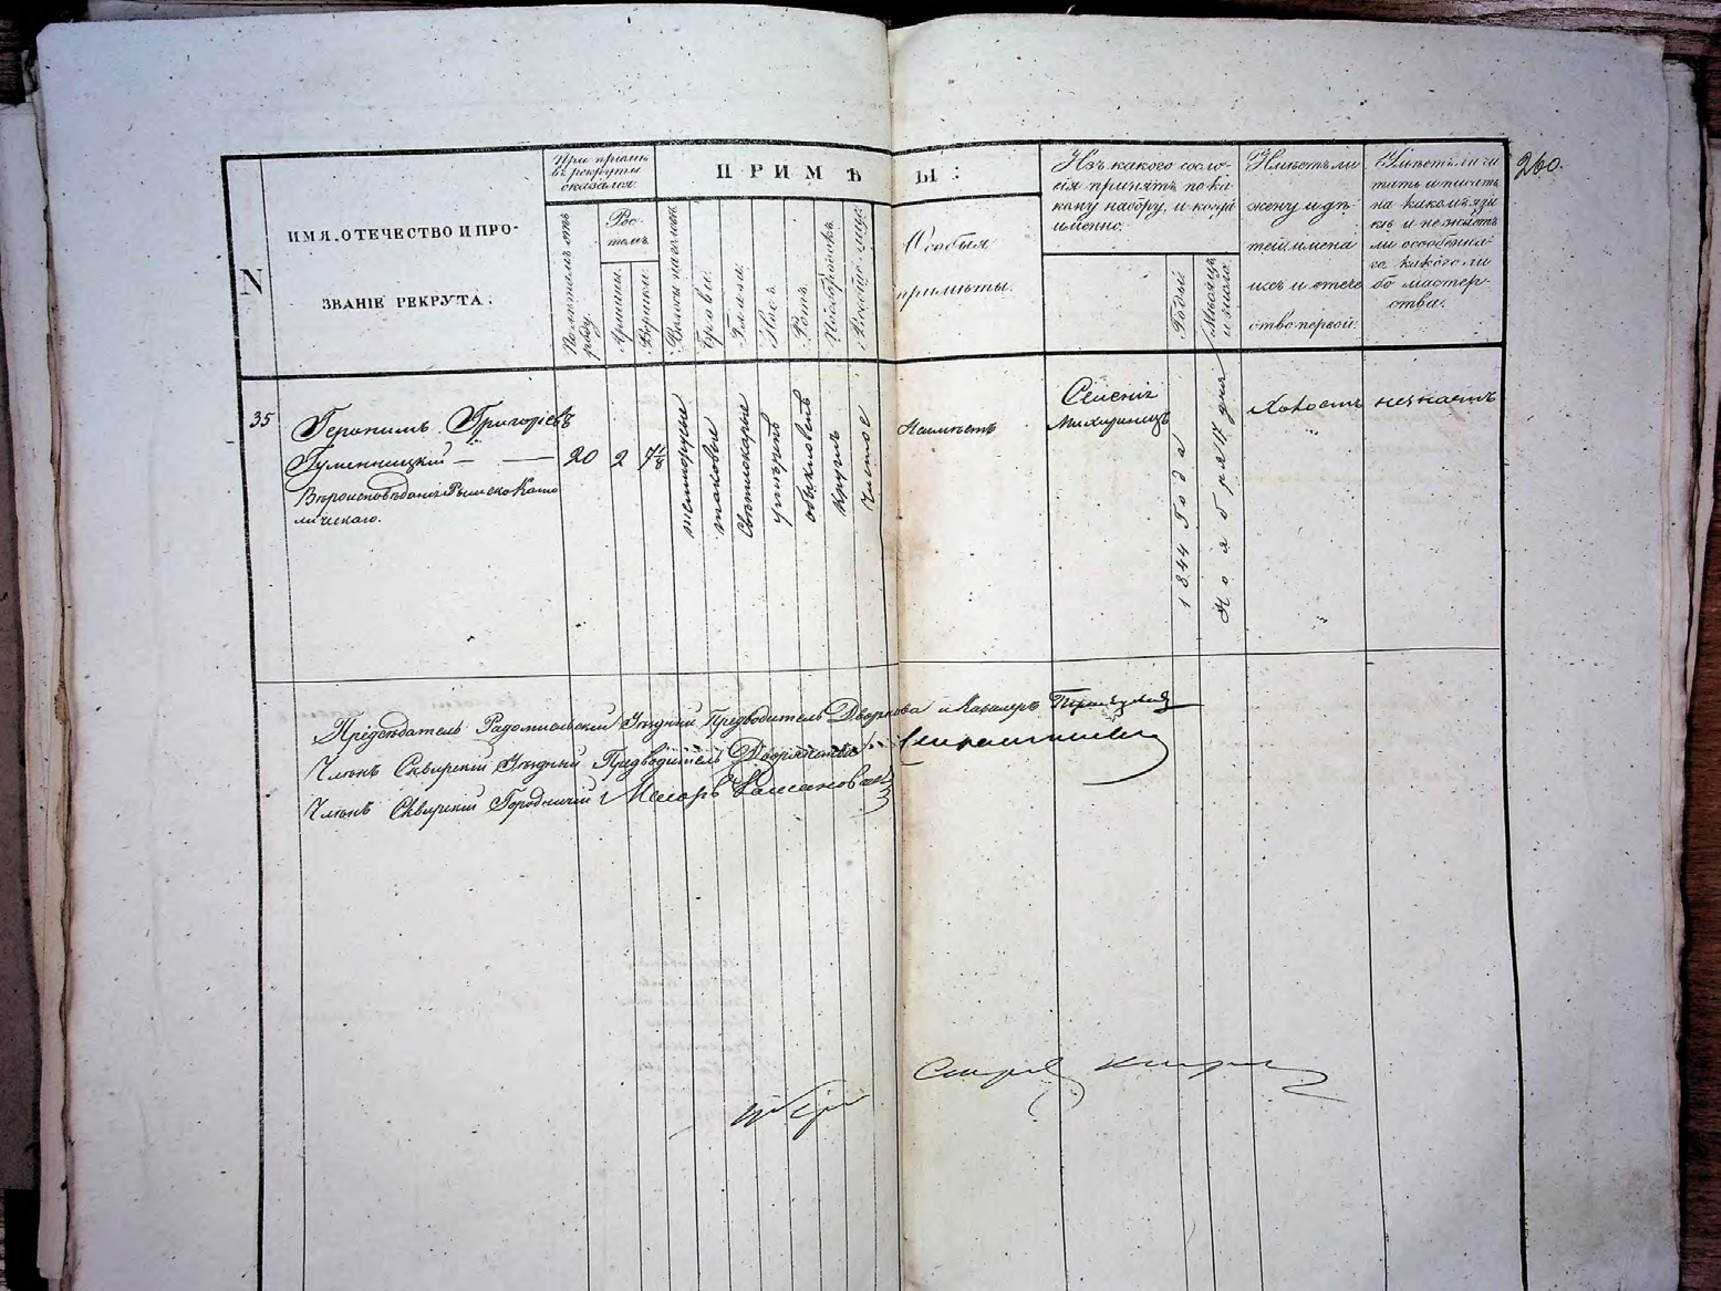 260.
N
ИМЯ, ОТЕЧЕСТВО И ПРО-
ЗВАНІЕ РЕКРУТА:
При пріемѣ
въ рекруты
оказался
Полѣтамъ отъ
роду.
Рос-
томъ
Аршины.
Вершки.
ПРИМѢТЫ:
Волосы на головѣ
Брови.
Глаза.
Носъ.
Ротъ.
Подбородокъ.
Вообще лице
Особыя
примѣты.
Изъ какого сосло-
вія принятъ по ка-
кому набору, и когда
именно:
Годы
Мѣсяцъ
и число.
Имѣетъ ли
жену и дѣ-
тей, имена
ихъ и отече
ство первой:
Умѣетъ ли чи
тать и писать
на какомъ язы
кѣ и не знаетъ
ли особенна-
го какого ли
бо мастер-
ства:
35
Геронимъ Григорьевъ
Гуменницкій — —
Вѣроисповѣданія Римско Като
лическаго.
20
2
7 1/8
темнорусые
таковые
свѣтлокаріе
умѣренъ
обыкновенъ
круглъ
чистое
Неимѣетъ
1844 Года
Ноября 17 дня
Холостъ
незнаетъ
Предсѣдатель Радомысльскій Уѣздный Предводитель Дворянства и Кавалеръ
Членъ Сквирскій Уѣздный Предводитель Дворянства
Членъ Сквирскій Городничій Маіоръ